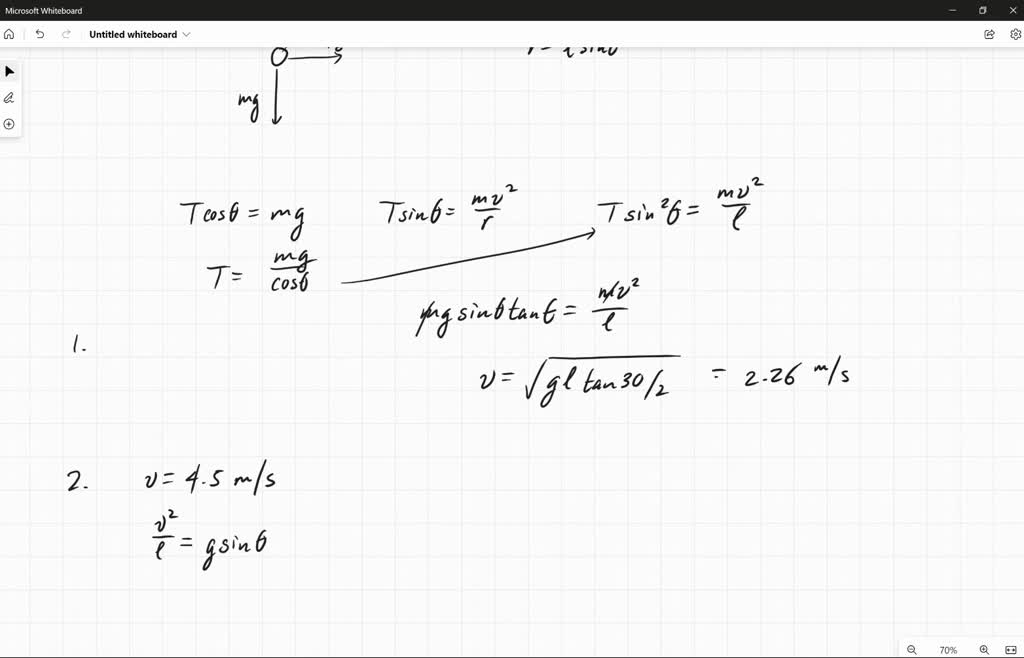 Microsoft Whiteboard
Untitled whiteboard
mg
T cosθ = mg
T sinθ = mv²/r
T sin²θ = mv²/l
T = mg/cosθ
mg sinθ tanθ = mv²/l
1.
v = √(gl tan30/2) = 2.26 m/s
2. v = 4.5 m/s
v²/l = g sinθ
70%